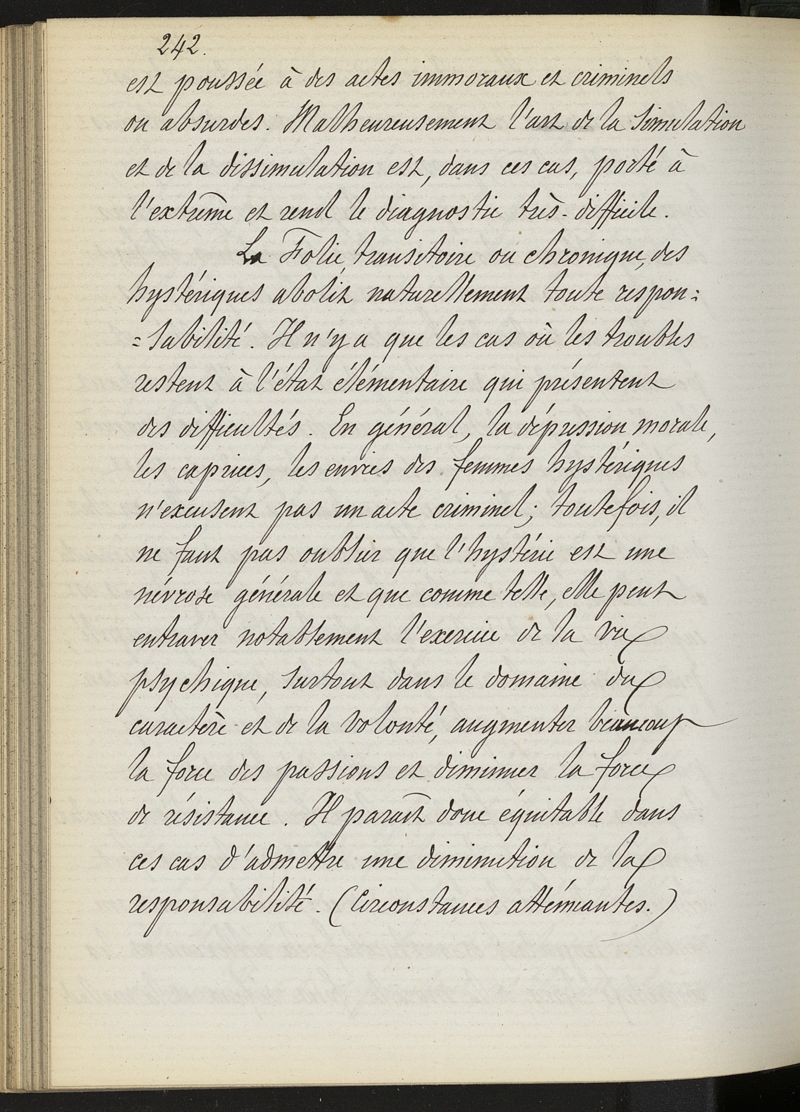 242.
est poussée à des actes immoraux et criminels
ou absurdes. Malheureusement l'art de la Simulation
et de la dissimulation est, dans ces cas, porté à
l'extrême et rend le diagnostic très-difficile.
La Folie, transitoire ou chronique, des
hystériques abolit naturellement toute respon=
=sabilité. Il n'y a que les cas où les troubles
restent à l'état élémentaire qui présentent
des difficultés. En général, la dépression morale,
les caprices, les envies des femmes hystériques
n'excusent pas un acte criminel; toutefois, il
ne faut pas oublier que l'hystérie est une
névrose générale et que comme telle, elle peut
entraver notablement l'exercice de la vie
psychique, surtout dans le domaine du
caractère et de la volonté, augmenter beaucoup
la force des passions et diminuer la force
de résistance. Il paraît donc équitable dans
ces cas d'admettre une diminution de la
responsabilité. (Circonstances atténuantes.)